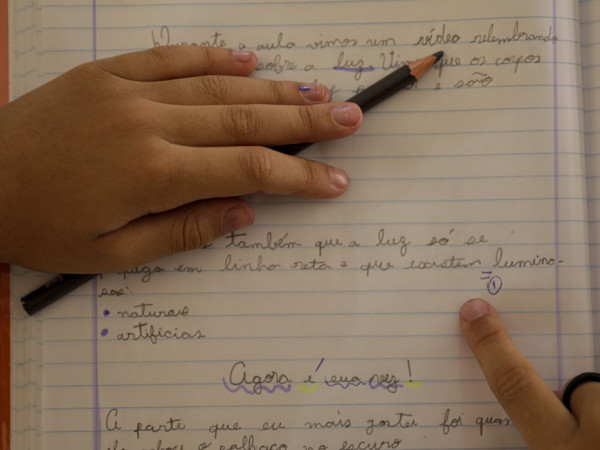 Durante a aula vimos um vídeo relembrando
sobre a luz. Vimos que os corpos
e são
também que a luz só se
em linha reta e que existem lumino-
sas:
• naturais
• artificias
①
Agora é sua vez!
A parte que eu mais gostei foi quan
o palhaço no escuro